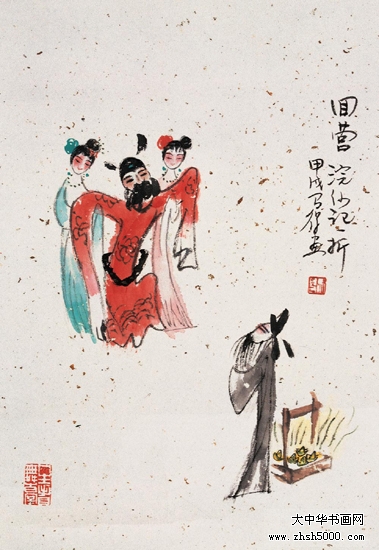 回营 浣纱记一折
甲戌马得画
大中华书画网
www.zhsh5000.com